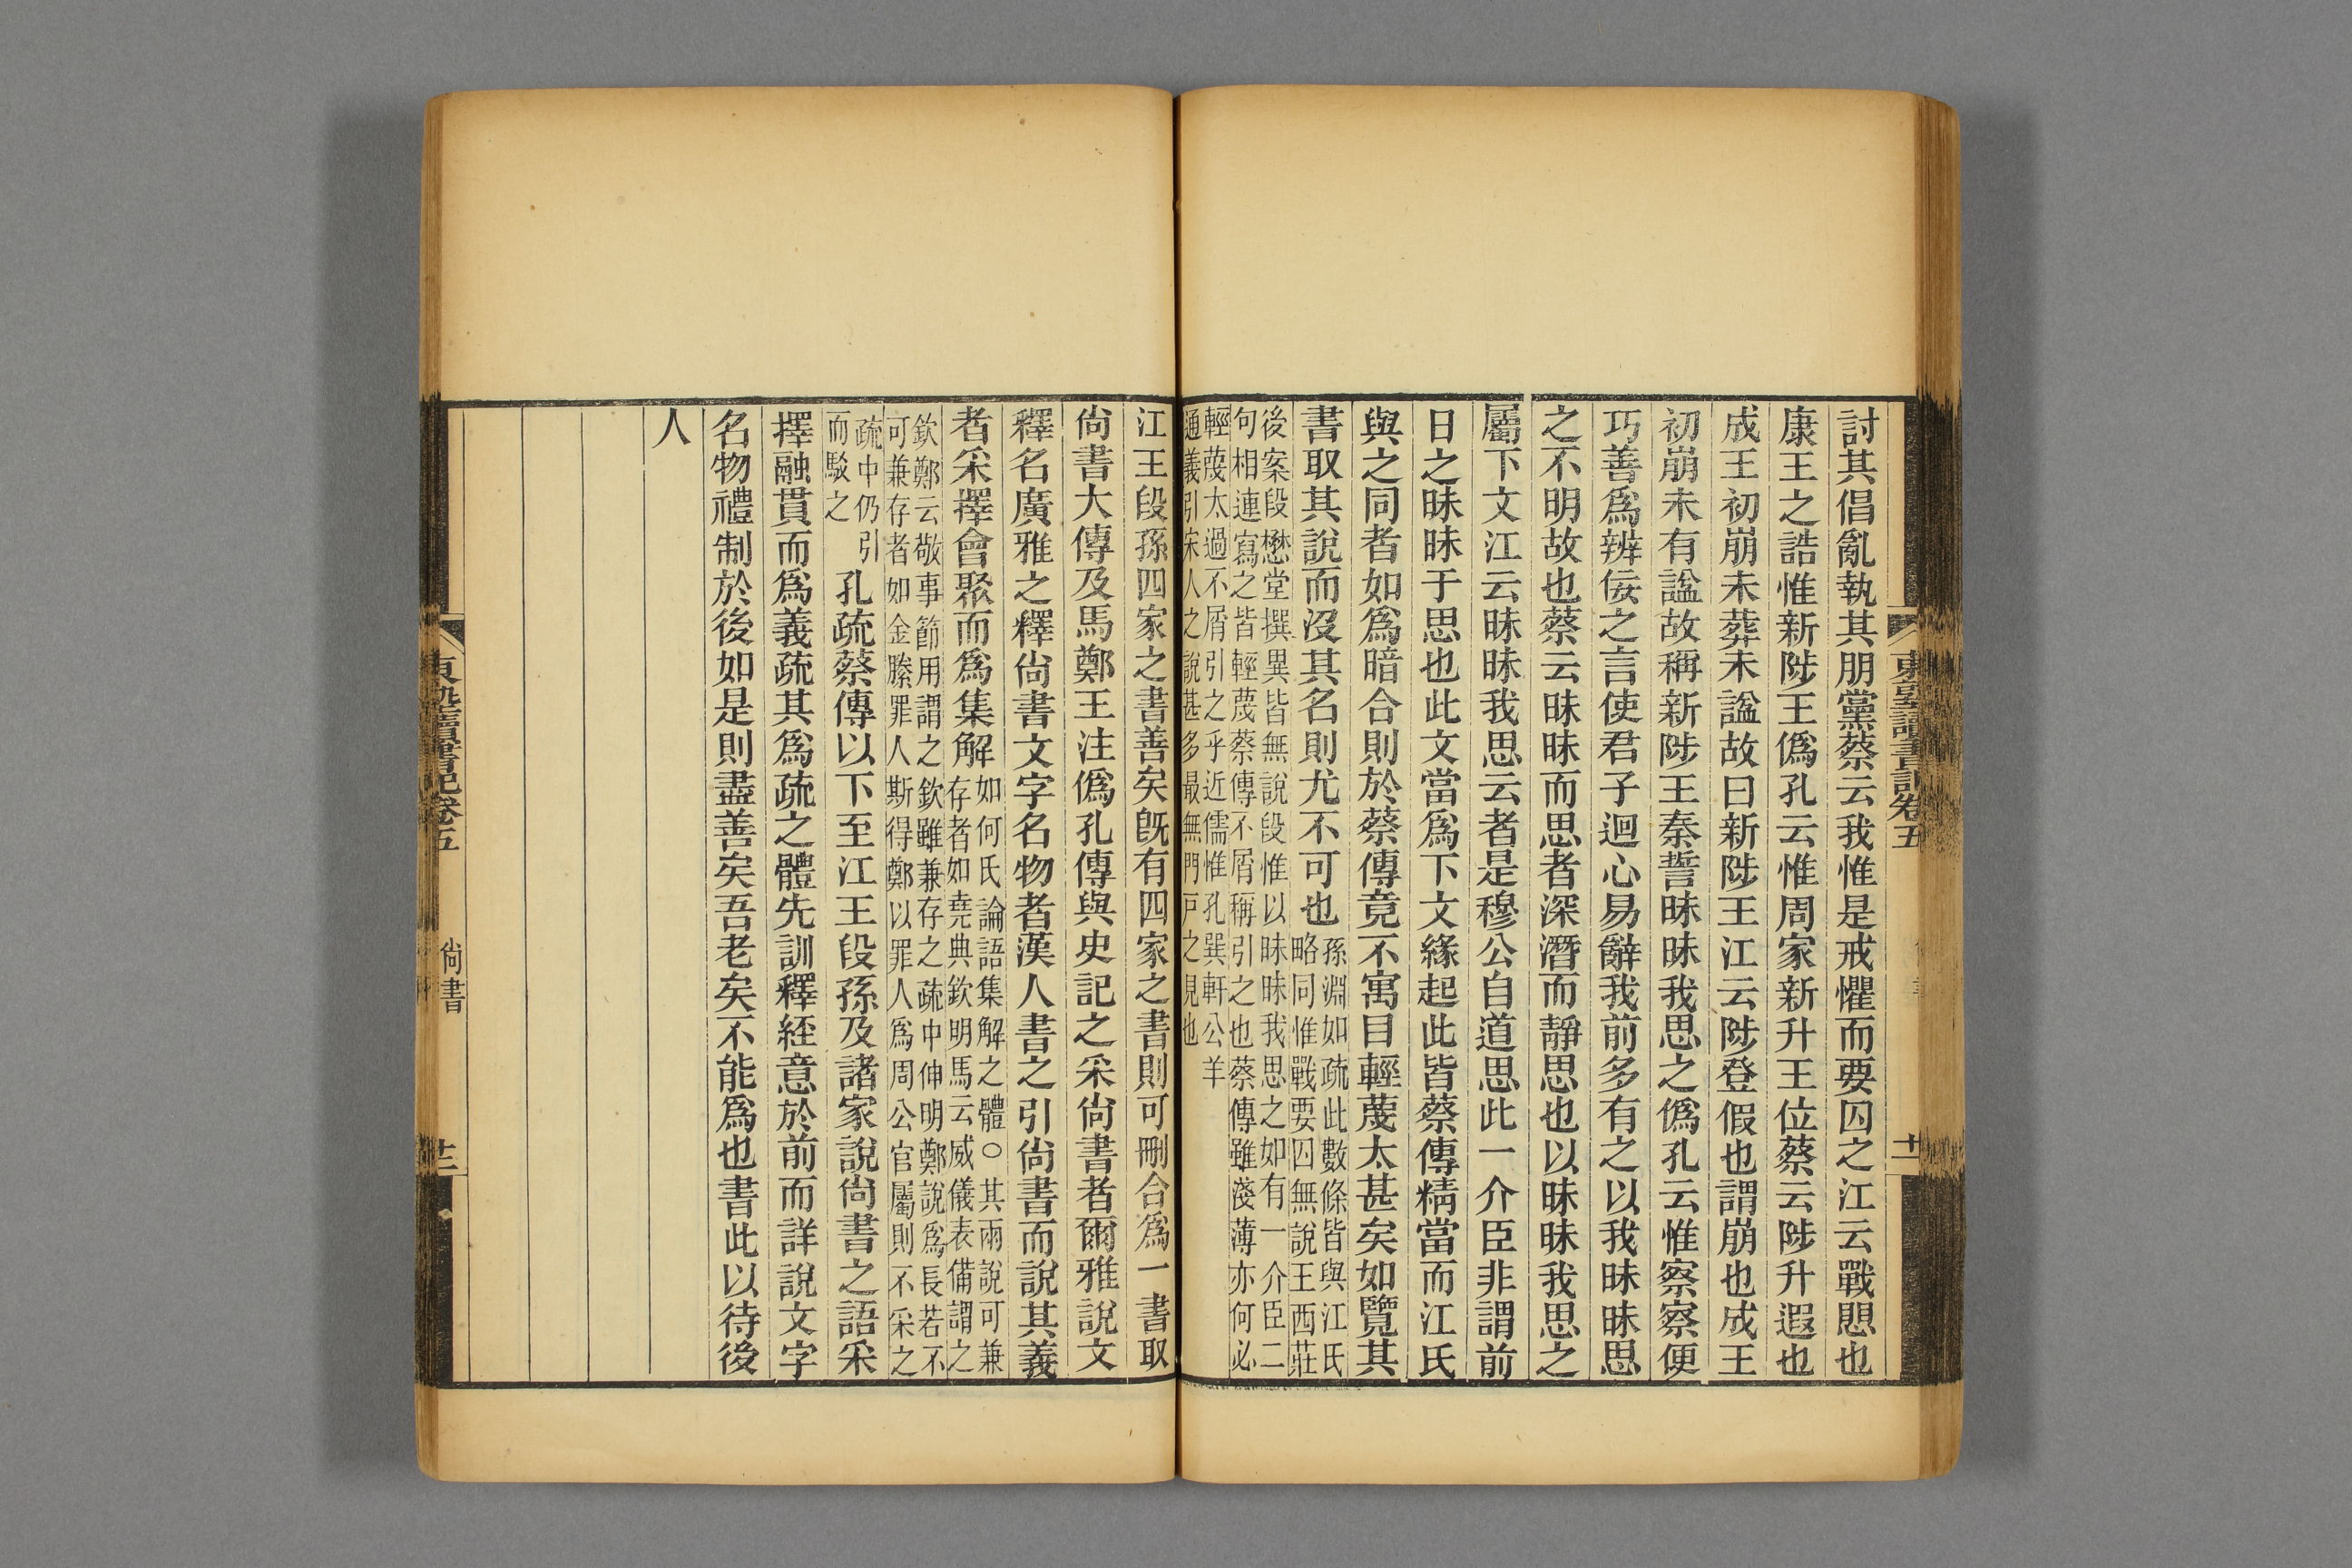 東塾讀書記卷五
討其倡亂執其朋黨蔡云我惟是戒懼而要囚之江云戰愳也
康王之誥惟新陟王僞孔云惟周家新升王位蔡云陟升遐也
成王初崩未葬未諡故曰新陟王江云陟登假也謂崩也成王
初崩未有諡故稱新陟王秦誓昧昧我思之僞孔云惟察察便
巧善爲辨佞之言使君子迴心易辭我前多有之以我昧昧思
之不明故也蔡云昧昧而思者深潛而靜思也以昧昧我思之
屬下文江云昧昧我思云者是穆公自道思此一介臣非謂前
日之昧昧于思也此文當爲下文緣起此皆蔡傳精當而江氏
與之同者如爲暗合則於蔡傳竟不寓目輕蔑太甚矣如覽其
書取其說而沒其名則尤不可也孫淵如疏此數條皆與江氏
略同惟戰要囚無說王西莊
後案段懋堂撰異皆無說段惟以昧昧我思之如有一介臣二
句相連寫之皆輕蔑蔡傳不屑稱引之也蔡傳雖淺薄亦何必
輕蔑太過不屑引之乎近儒惟孔巽軒公羊
通義引宋人之說甚多最無門戸之見也
江王段孫四家之書善矣旣有四家之書則可刪合爲一書取
尙書大傳及馬鄭王注僞孔傳與史記之采尙書者爾雅說文
釋名廣雅之釋尙書文字名物者漢人書之引尙書而說其義
者采擇會聚而爲集解如何氏論語集解之體○其兩說可兼
存者如堯典欽明馬云威儀表備謂之
欽鄭云敬事節用謂之欽雖兼存之疏中伸明鄭說爲長若不
可兼存者如金縢罪人斯得鄭以罪人爲周公官屬則不采之
疏中仍引
而駁之孔疏蔡傳以下至江王段孫及諸家說尙書之語采
擇融貫而爲義疏其爲疏之體先訓釋經意於前而詳說文字
名物禮制於後如是則盡善矣吾老矣不能爲也書此以待後
人
東塾讀書記卷五
尙書